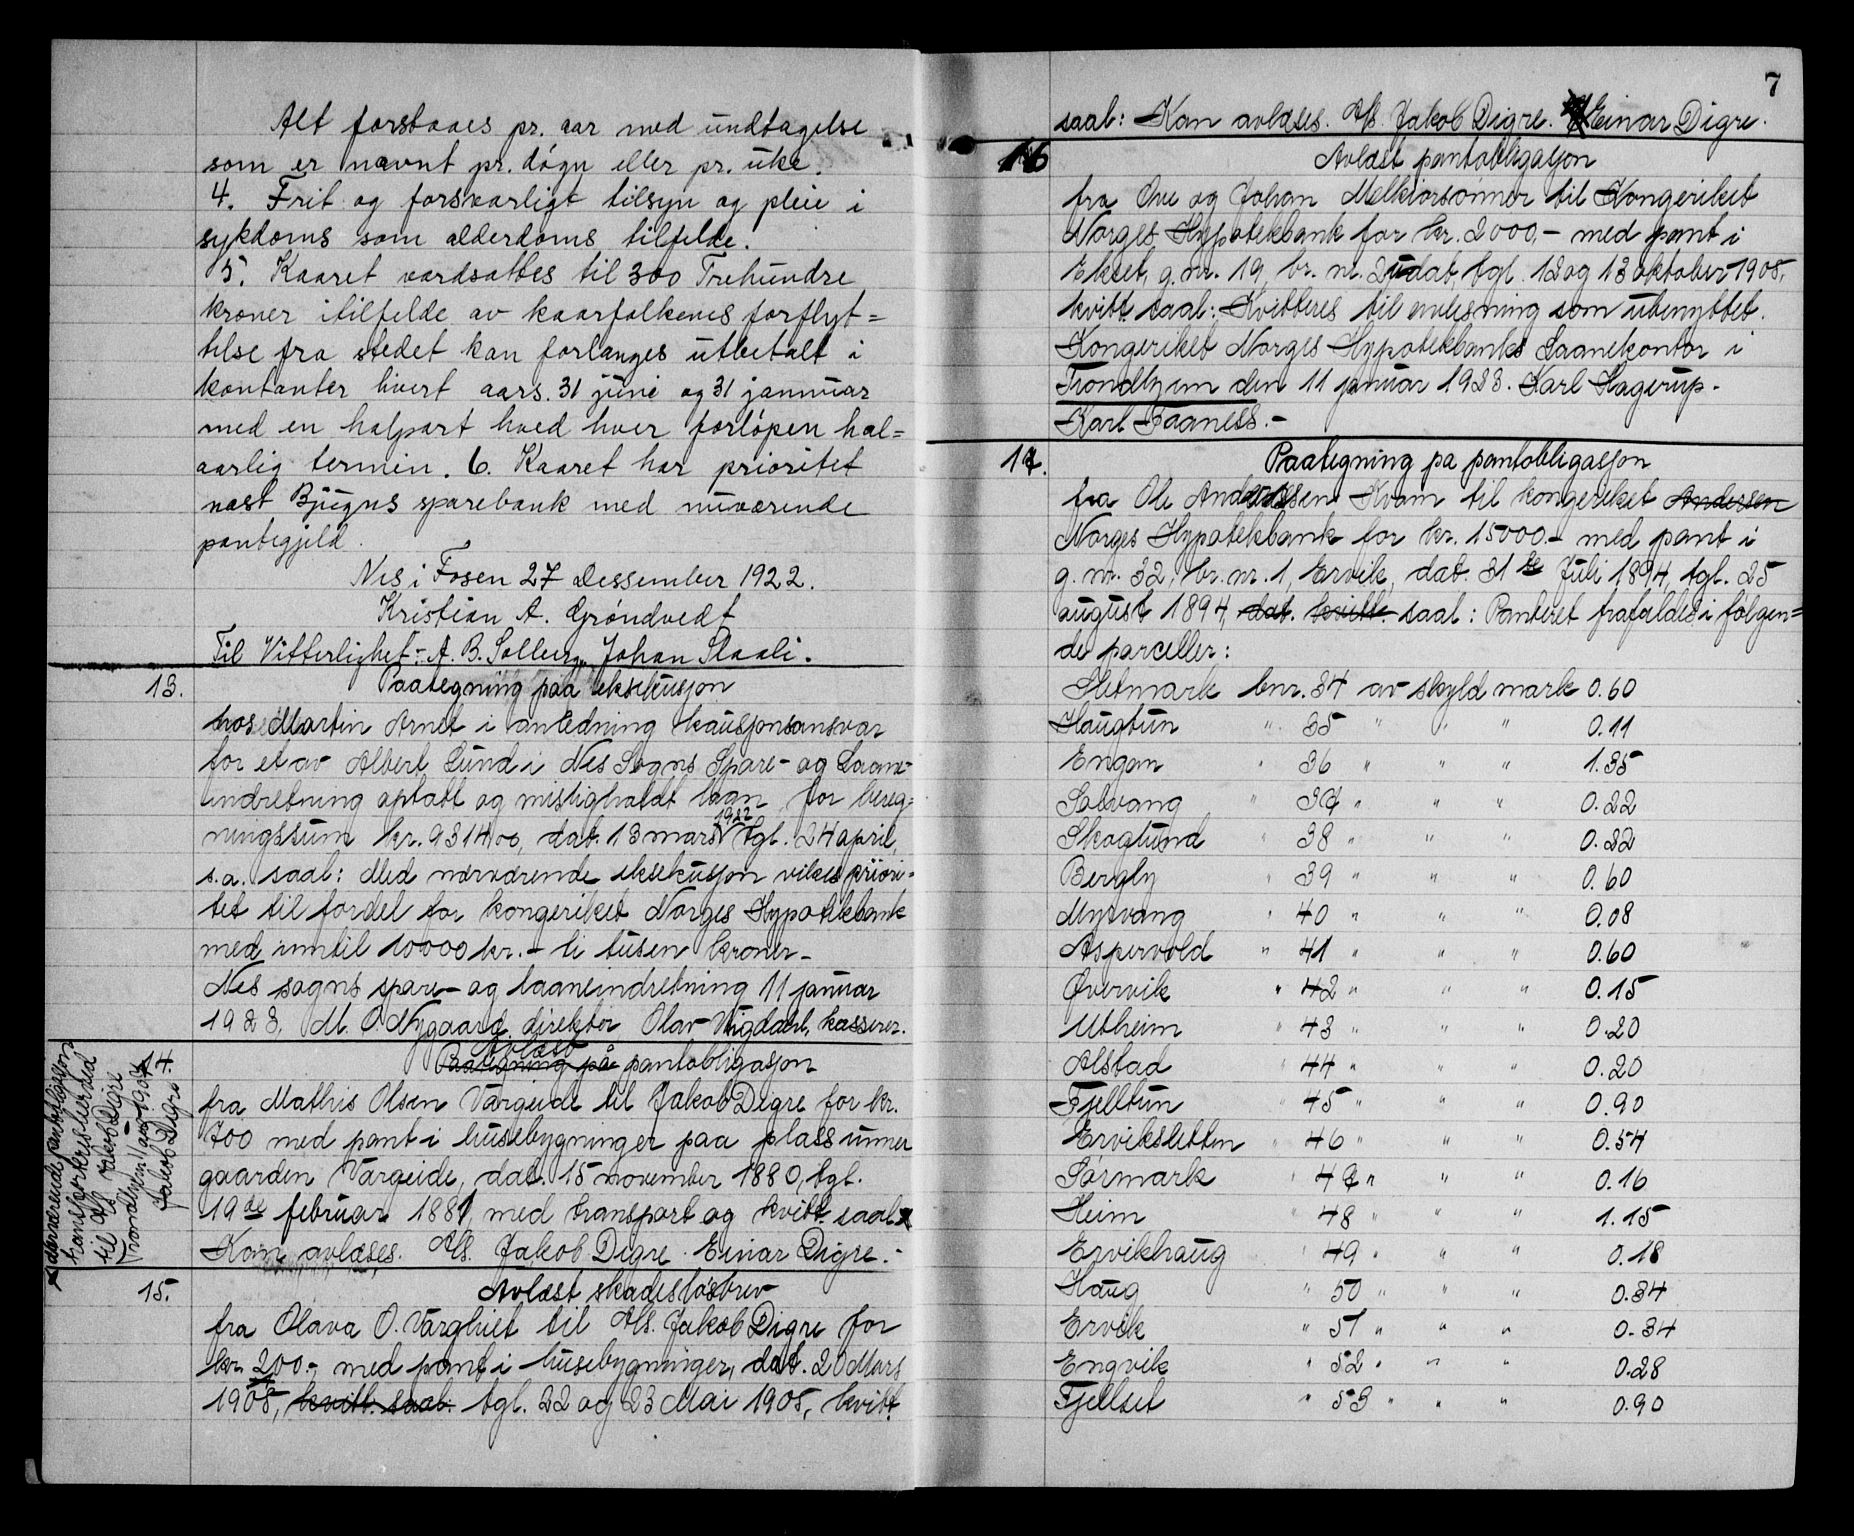 Alt forstaaes pr. aar med undtagelse
som er nævnt pr. døgn eller pr. uke.
4. Frit og forsvarligt tilsyn og pleie i
sykdoms som alderdoms tilfelde.
5. Kaaret værdsættes til 300 Trehundre
kroner i tilfelde av kaarfolkenes forflyt=
telse fra stedet kan forlanges utbetalt i
kontanter hvert aars. 31 juni og 31 jannuar
med en halpart hved hver forløpen hal=
aarlig termin. 6. Kaaret har prioritet
næst Bjugns sparebank med nuværende
pantegjeld.
Nes i Fosen 27 Dessember 1922.
Kristian A. Grøndvedt
Til Vitterlighet:- A. B. Solberg, Johan Staali.
13. Paategning paa eksekusjon
hos Martin Arnet i anledning kausjonsansvar
for et av Albert Lund i Nes Sogns Spare- og Laane-
indretning optatt og misligholdt laan, for bereg-
ningssum kr. 931400, dat. 13 mars 1922 tgl. 24 april,
s.a. saal: Med nærværende eksekusjon vikes priori-
tet til fordel for kongeriket Norges Hypotekbank
med inntil 10000 kr.- ti tusen kroner-
Nes sogns spare- og laaneindretning 11 januar
1923. M. O. Nygaard, direktør, Olav Vigdahl, kasserer.
14. Paategning på Avlæst pantobligasjon
fra Mathis Olsen Vargeide til Jakob Digre for kr.
700 med pant i husebygninger paa plass unner
gaarden Vargeide, dat. 15 november 1880, tgl.
19de februar 1881, med transport og kvitt. saal
Kan avlæses. A/S. Jakob Digre. Einar Digre.-
Nærværende pantobligasjon
transporteres herved
til A/S Jakob Digre
Trondhjem 11
Jakob Digre
15. Avlæst skadesløsbrev
fra Olava O. Varghiet til A/S. Jakob Digre for
kr. 200.- med pant i husebygninger, dat. 20 Mars
1905, kvitt. saal. tgl. 22 og 23 Mai 1905, kvitt.
7
saal: Kan avlæses. A/S. Jakob Digre. Einar Digre.
16 Avlæst pantobligasjon
fra Ove og Johan Melkiorsønner til Kongeriket
Norges Hypotekbank for kr. 2000,- med pant i
Ekset, g.nr. 19, br. nr. 2, udat, tgl. 12 og 13 oktober 1905,
kvitt. saal: Kvitteres til avlesning som ubenyttet.
Kongeriket Norges Hypotekbanks Laanekontor i
Trondhjem den 11 januar 1923. Karl Hagerup.
Karl Faaness.-
17. Paategning pa pantobligasjon
fra Ole Andersen Kvam til kongeriket Andersen
Norges Hypotekbank for kr. 15000.- med pant i
g. nr. 32, br. nr. 1, Ervik, dat. 31te Juli 1894, tgl. 25
august 1894, dat. kvitt. saal: Panteret frafaldes i følgen=
de parceller:
Sletmark bnr. 34 av skyld mark 0.60
Haugtun " 35 " " " 0.11
Engan " 36 " " " 1.35
Solvang " 37 " " " 0.22
Skoglund " 38 " " " 0.22
Bergly " 39 " " " 0.60
Myrvang " 40 " " " 0.08
Aspervold " 41 " " " 0.60
Øvervik " 42 " " " 0.15
Utheim " 43 " " " 0.20
Alstad " 44 " " " 0.20
Fjelltun " 45 " " " 0.90
Erviksletten " 46 " " " 0.54
Sørmark " 47 " " " 0.16
Heim " 48 " " " 1.15
Ervikhaug " 49 " " " 0.18
Haug " 50 " " " 0.34
Ervik " 51 " " " 0.34
Engvik " 52 " " " 0.28
Fjellset " 53 " " " 0.90